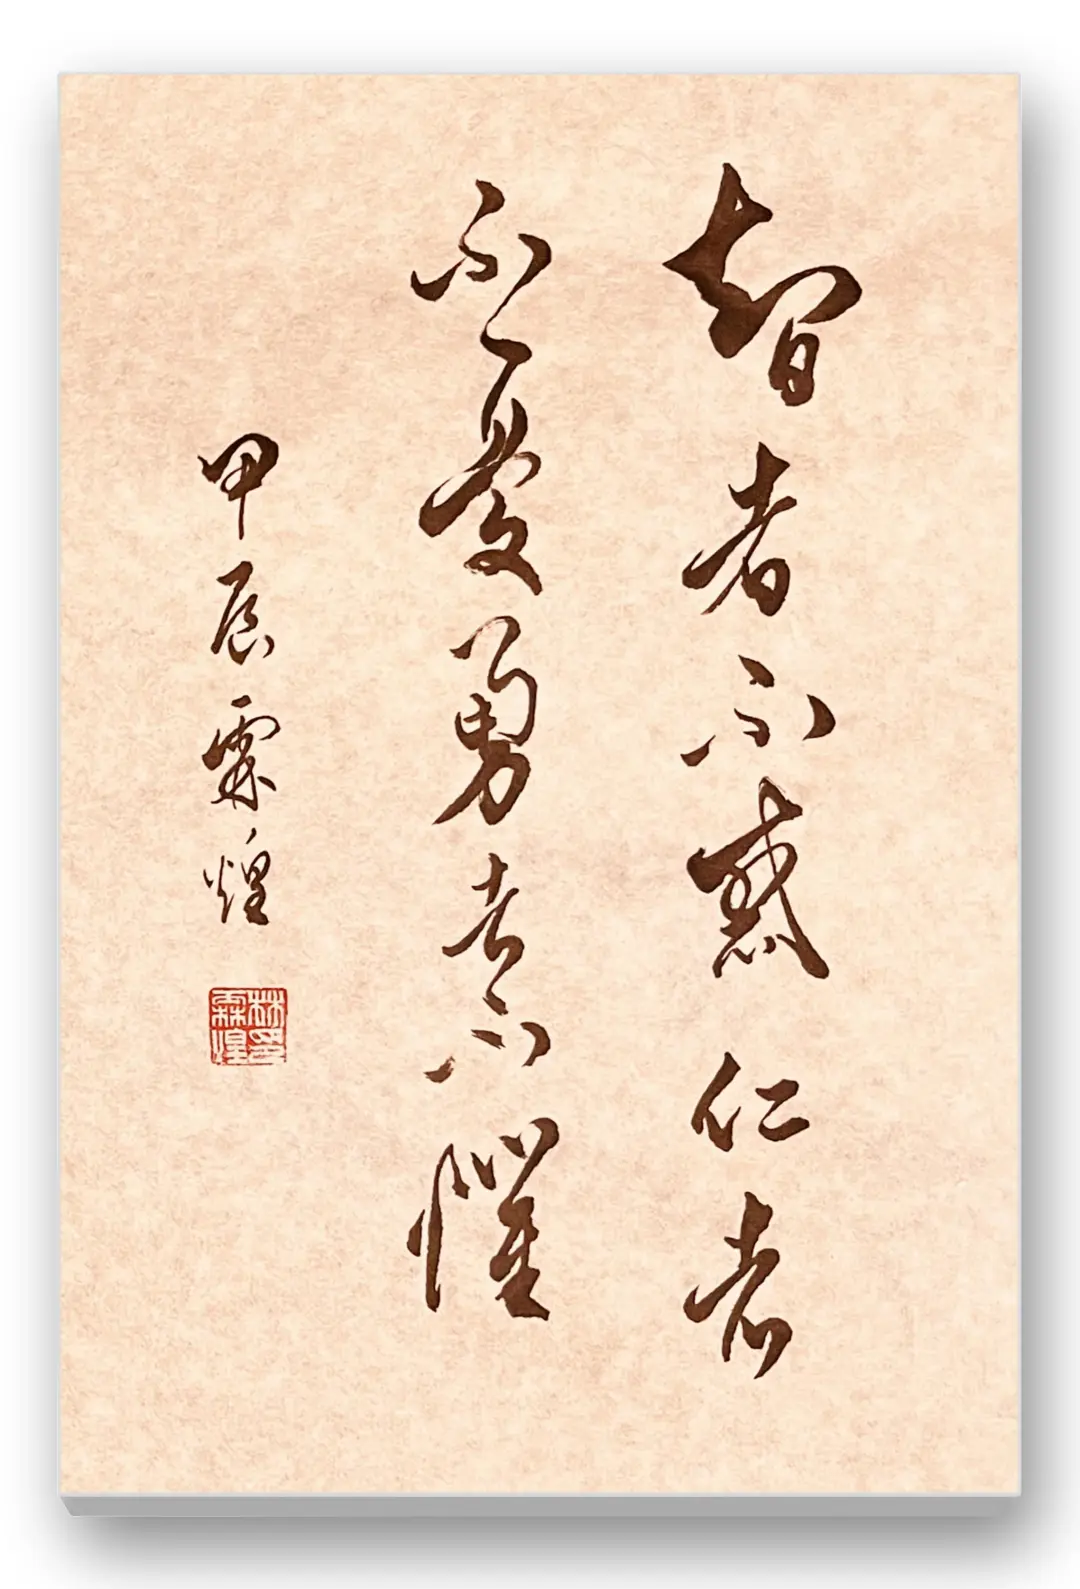 智者不惑仁者
不憂勇者不懼
甲辰霖煌
林霖煌印